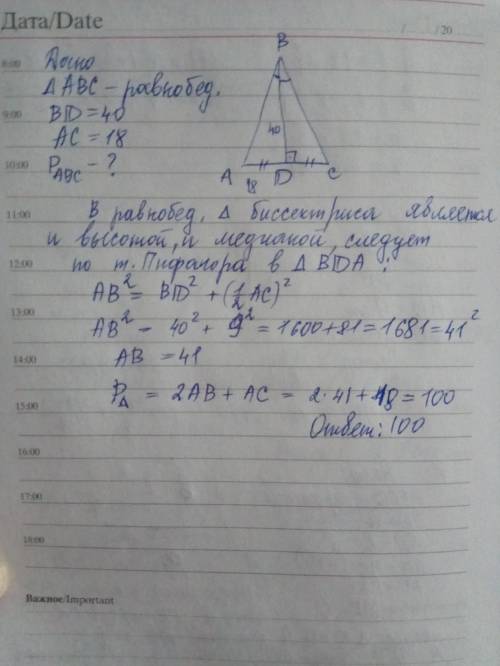 Дата/Date
/ /20
8:00 Дано
Δ ABC – равнобед.
9:00 BD = 40
AC = 18
10:00 P_ABC – ?
B
40
A 18 D C
11:00 В равнобед. Δ биссектриса является
и высотой, и медианой, следует
12:00 по т. Пифагора в Δ BDA:
AB² = BD² + (1/2 AC)²
13:00 AB² – 40² + 9² = 1600 + 81 = 1681 = 41²
14:00 AB = 41
P_Δ = 2AB + AC = 2·41 + 18 = 100
15:00 Ответ: 100
16:00
17:00
18:00
Важное/Important